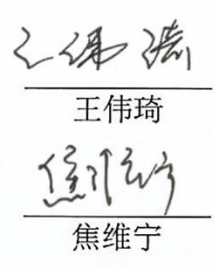 王伟琦
王伟琦
焦维宁
焦维宁